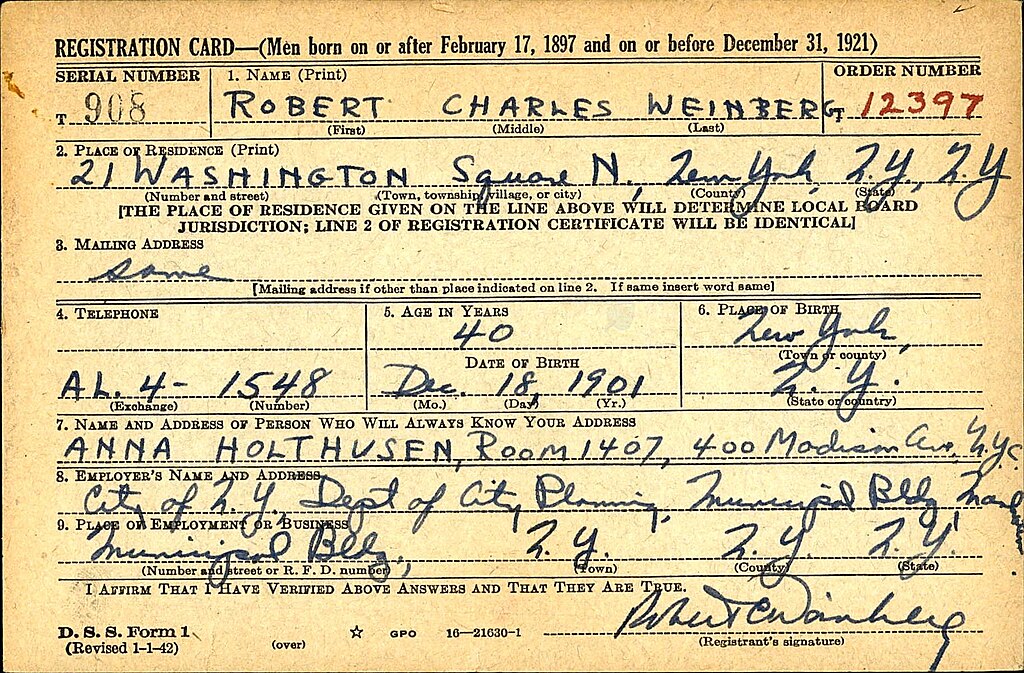 REGISTRATION CARD—(Men born on or after February 17, 1897 and on or before December 31, 1921)
SERIAL NUMBER 1. NAME (Print) ORDER NUMBER
T 908 ROBERT CHARLES WEINBERG T 12397
(First) (Middle) (Last)
2. PLACE OF RESIDENCE (Print)
21 WASHINGTON Square N., New York, N.Y., N.Y
(Number and street) (Town, township, village, or city) (County) (State)
[THE PLACE OF RESIDENCE GIVEN ON THE LINE ABOVE WILL DETERMINE LOCAL BOARD
JURISDICTION; LINE 2 OF REGISTRATION CERTIFICATE WILL BE IDENTICAL]
3. MAILING ADDRESS
same
[Mailing address if other than place indicated on line 2. If same insert word same]
4. TELEPHONE 5. AGE IN YEARS 6. PLACE OF BIRTH
40 New York,
DATE OF BIRTH (Town or county)
AL. 4- 1548 Dec. 18, 1901 N.Y.
(Exchange) (Number) (Mo.) (Day) (Yr.) (State or country)
7. NAME AND ADDRESS OF PERSON WHO WILL ALWAYS KNOW YOUR ADDRESS
ANNA HOLTHUSEN, ROOM 1407, 400 Madison Ave, N.Y.C.
8. EMPLOYER'S NAME AND ADDRESS
City of N.Y. Dept of City Planning, Municipal Bldg,
9. PLACE OF EMPLOYMENT OR BUSINESS
Municipal Bldg, N.Y. N.Y. N.Y.
(Number and street or R. F. D. number) (Town) (County) (State)
I AFFIRM THAT I HAVE VERIFIED ABOVE ANSWERS AND THAT THEY ARE TRUE.
Robert C Weinberg
D. S. S. Form 1 GPO 16—21630-1 (Registrant's signature)
(Revised 1-1-42) (over)